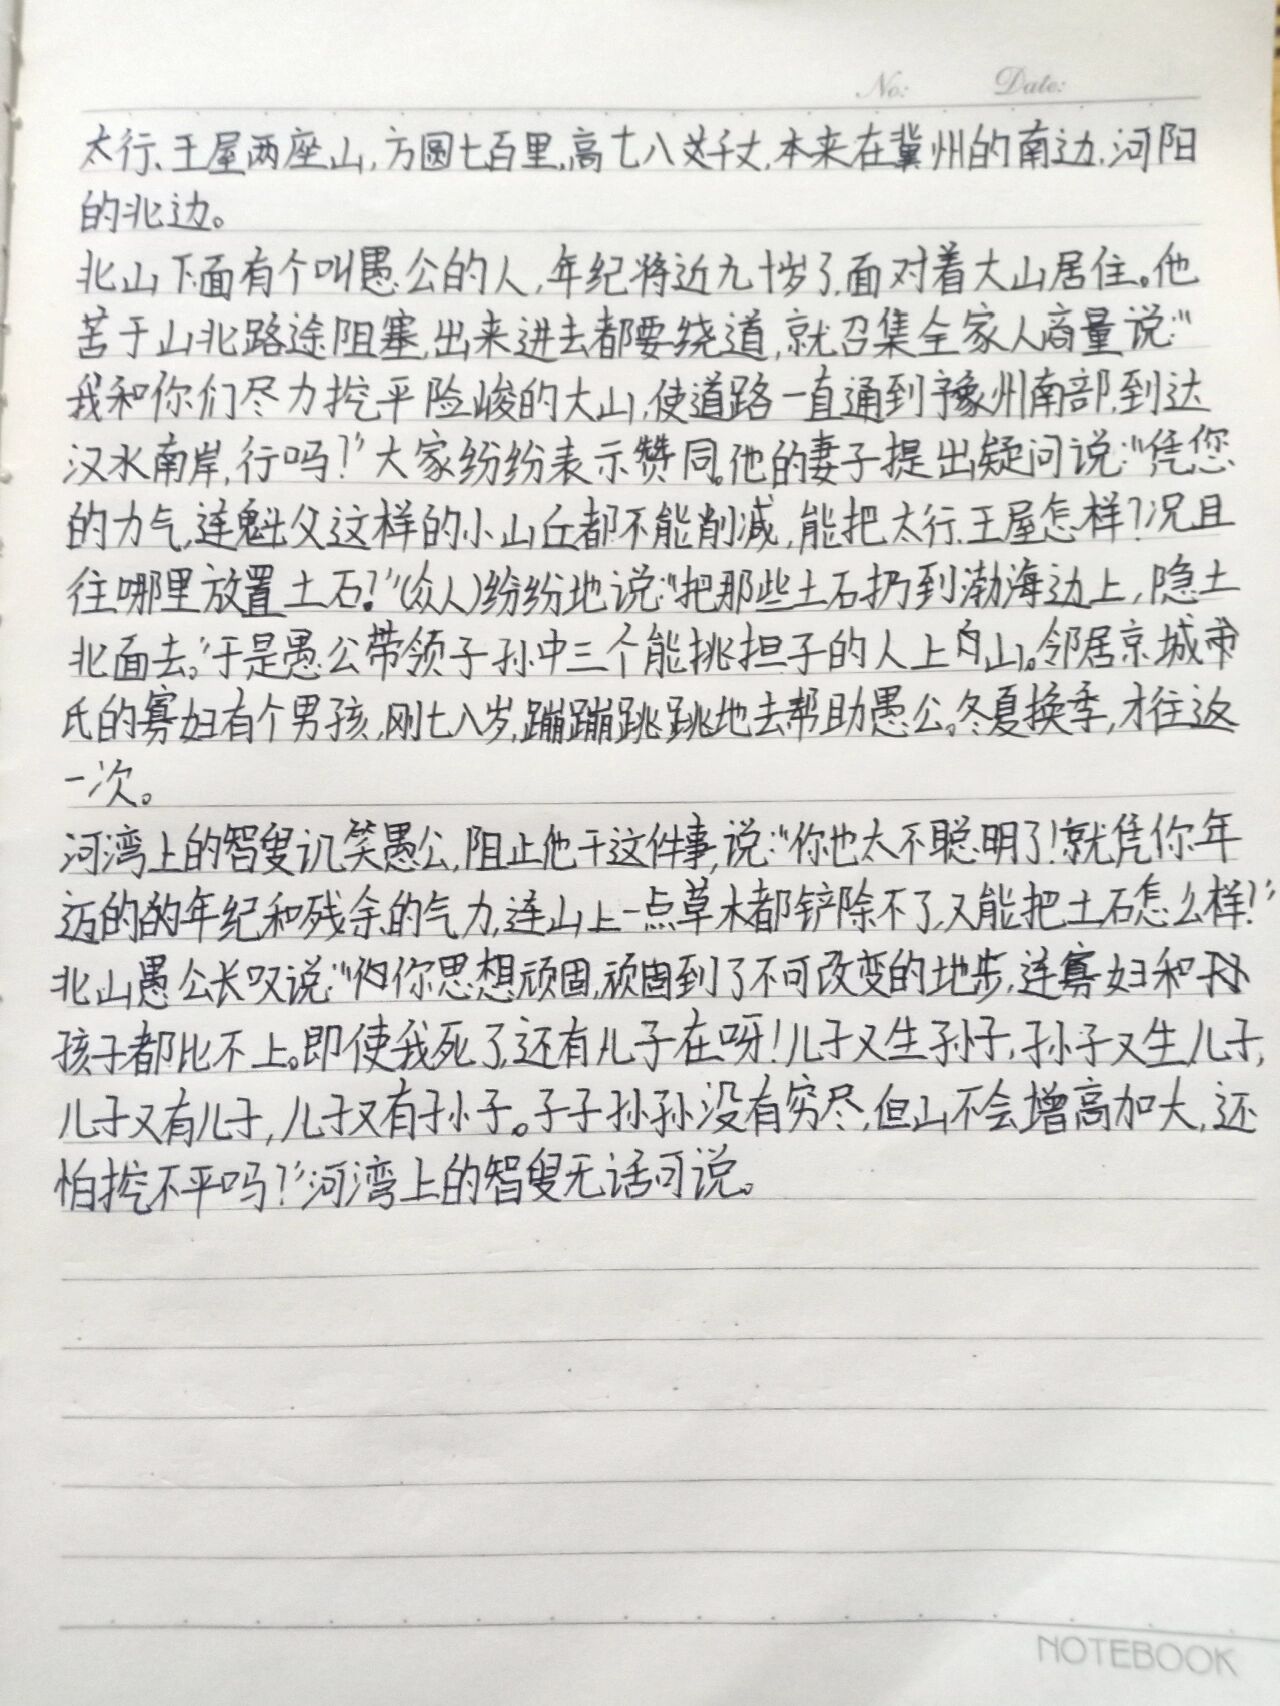 No: Date:
太行、王屋两座山,方圆七百里,高七八千丈,本来在冀州的南边,河阳
的北边。
北山下面有个叫愚公的人,年纪将近九十岁了,面对着大山居住。他
苦于山北路途阻塞,出来进去都要绕道,就召集全家人商量说:“
我和你们尽力挖平险峻的大山,使道路一直通到豫州南部,到达
汉水南岸,行吗?”大家纷纷表示赞同。他的妻子提出疑问说:“凭您
的力气,连魁父这样的小山丘都不能削减,能把太行、王屋怎样?况且
往哪里放置土石?”(众人)纷纷地说:“把那些土石扔到渤海边上,隐土
北面去。”于是愚公带领子孙中三个能挑担子的人上山。邻居京城
氏的寡妇有个男孩,刚七八岁,蹦蹦跳跳地去帮助愚公。冬夏换季,才往返
一次。
河湾上的智叟讥笑愚公,阻止他干这件事,说:“你也太不聪明了!就凭你年
迈的的年纪和残余的气力,连山上一点草木都铲除不了,又能把土石怎么样!”
北山愚公长叹说:“你思想顽固,顽固到了不可改变的地步,连寡妇和
孩子都比不上。即使我死了,还有儿子在呀!儿子又生孙子,孙子又生儿子,
儿子又有儿子,儿子又有孙子。子子孙孙没有穷尽,但山不会增高加大,还
怕挖不平吗?”河湾上的智叟无话可说。
NOTEBOOK